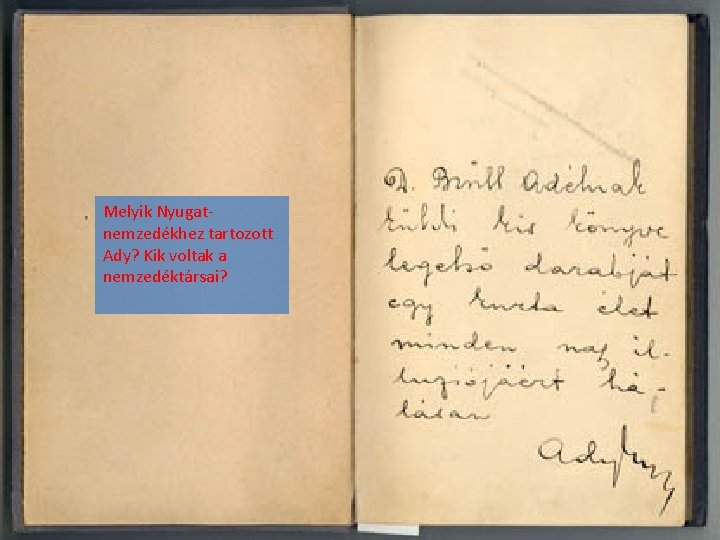 Melyik Nyugat-
nemzedékhez tartozott
Ady? Kik voltak a
nemzedéktársai?
D. Brüll Adélnak
küldi kis könyve
legelső darabját
egy kurta élet
minden nagy il-
luziójáért há-
lásan
Ady